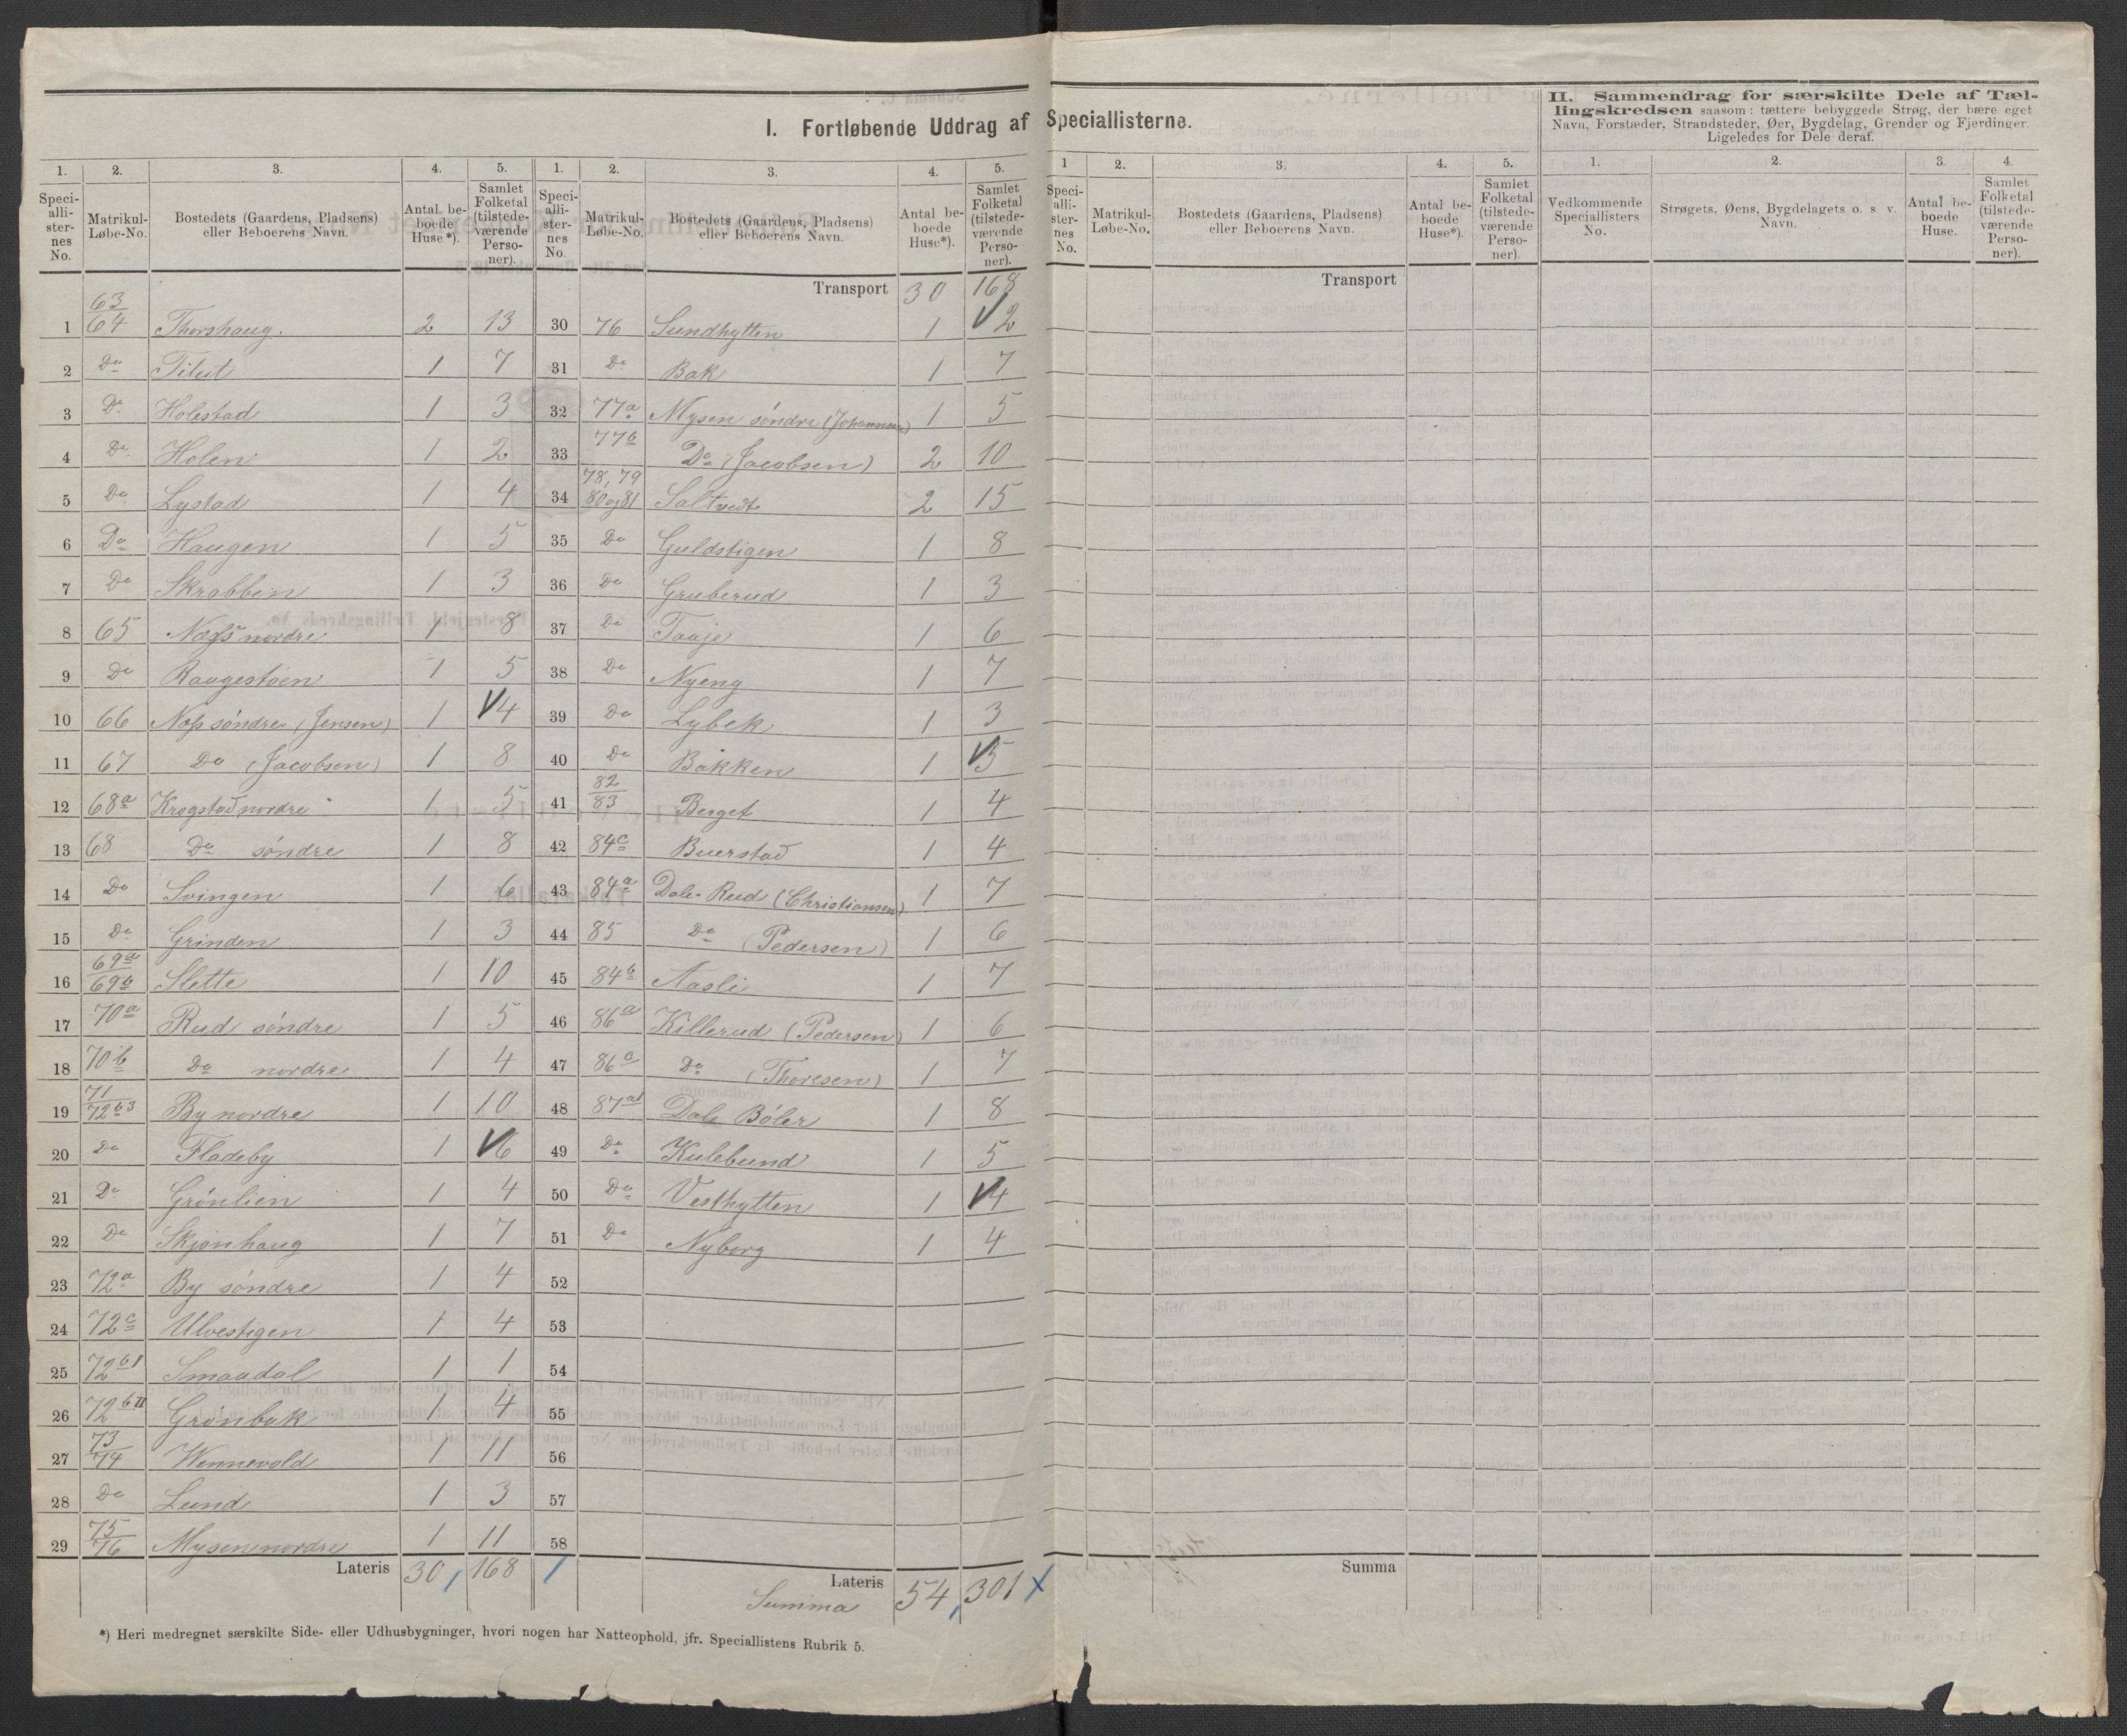 I. Fortløbende Uddrag af Speciallisterne.
II. Sammendrag for særskilte Dele af Tæl-
lingskredsen saasom: tættere bebyggede Strøg, der bære eget
Navn, Forstæder, Strandsteder, Øer, Bygdelag, Grender og Fjerdinger.
Ligeledes for Dele deraf.
1. 2. 3. 4. 5. 1. 2. 3. 4. 5. 1 2. 3. 4. 5. 1. 2. 3. 4.
Speci-alli-ster-nes No. Matrikul-Løbe-No. Bostedets (Gaardens, Pladsens) eller Beboerens Navn. Antal be-boede Huse*). Samlet Folketal (tilstede-værende Perso-ner).
Speci-alli-ster-nes No. Matrikul-Løbe-No. Bostedets (Gaardens, Pladsens) eller Beboerens Navn. Antal be-boede Huse*). Samlet Folketal (tilstede-værende Perso-ner).
Speci-alli-ster-nes No. Matrikul-Løbe-No. Bostedets (Gaardens, Pladsens) eller Beboerens Navn. Antal be-boede Huse*). Samlet Folketal (tilstede-værende Perso-ner).
Vedkommende Speciallisters No. Strøgets, Øens, Bygdelagets o. s v. Navn. Antal be-boede Huse. Samlet Folketal (tilstede-værende Perso-ner).
1 63/64 Thorshaug. 2 13
2 Do Tilut 1 7
3 Do Holestad 1 3
4 Do Holen 1 2
5 Do Lystad 1 4
6 Do Haugen 1 5
7 Do Skrabben 1 3
8 65 Næss nordre 1 8
9 Do Raugestøen 1 5
10 66 Næss søndre (Jensen) 1 4
11 67 Do (Jacobsen) 1 8
12 68a Krogstad nordre 1 5
13 68 Do søndre 1 8
14 Do Svingen 1 6
15 Do Grinden 1 3
16 69a/69b Slette 1 10
17 70a Rud søndre 1 5
18 70b Do nordre 1 4
19 71/72b3 By nordre 1 10
20 Do Fladeby 1 6
21 Do Grønlien 1 4
22 Do Skjønhaug 1 7
23 72a By søndre 1 4
24 72c Ulvestigen 1 4
25 72bI Smaadal 1 1
26 72bII Grønbak 1 4
27 73/74 Wennevold 1 11
28 Do Lund 1 3
29 75/76 Mysen nordre 1 11
Lateris 30 168
Transport 30 168
30 76 Sundhytten 1 2
31 Do Bak 1 7
32 77a Mysen søndre (Johannsen) 1 5
33 77b Do (Jacobsen) 2 10
34 78, 79 80 og 81 Saltvedt 2 15
35 Do Guldstigen 1 8
36 Do Gruberud 1 3
37 Do Taaje 1 6
38 Do Nyeng 1 7
39 Do Lybek 1 3
40 Do Bakken 1 5
41 82/83 Berget 1 4
42 84c Buerstad 1 4
43 84a Dale-Rud (Christiansen) 1 7
44 85 Do (Pedersen) 1 6
45 84b Aasli 1 7
46 86a Killerud (Pedersen) 1 6
47 86c Do (Thoresen) 1 7
48 87a1 Dale Bøler 1 8
49 Do Kulebund 1 5
50 Do Vesthytten 1 4
51 Do Nyborg 1 4
52
53
54
55
56
57
58
Lateris
Summa 54 301
Transport
Summa
*) Heri medregnet særskilte Side- eller Udhusbygninger, hvori nogen har Natteophold, jfr. Speciallistens Rubrik 5.